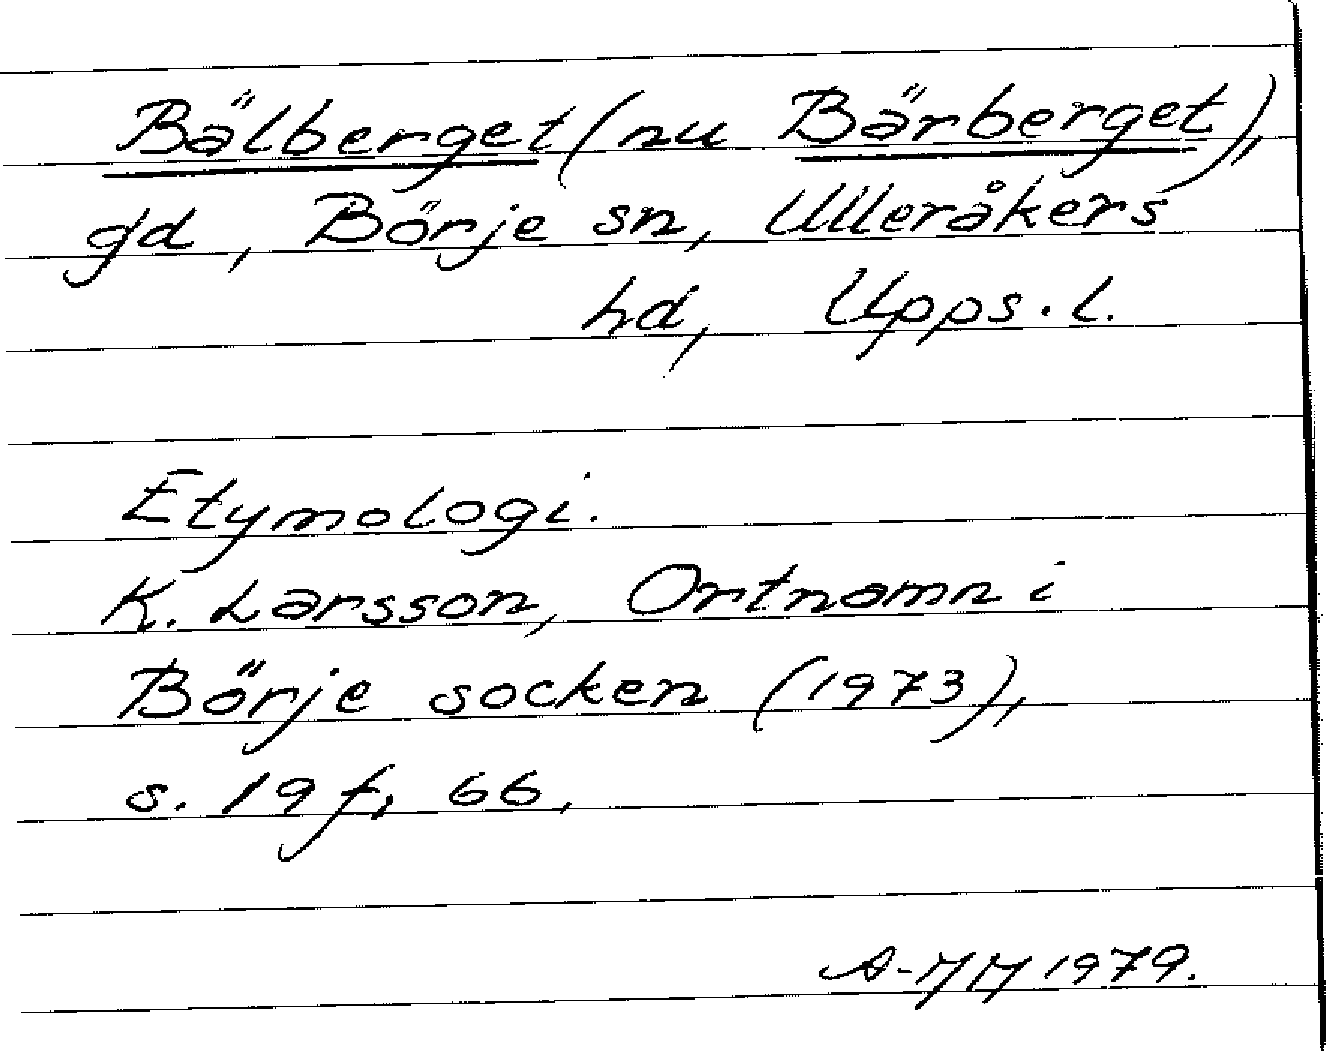 Bälberget (nu Bärberget),
gd, Börje sn, Ulleråkers
hd, Upps. l.
Etymologi.
K. Larsson, Ortnamn i
Börje socken (1973),
s. 19 f, 66.
1979.